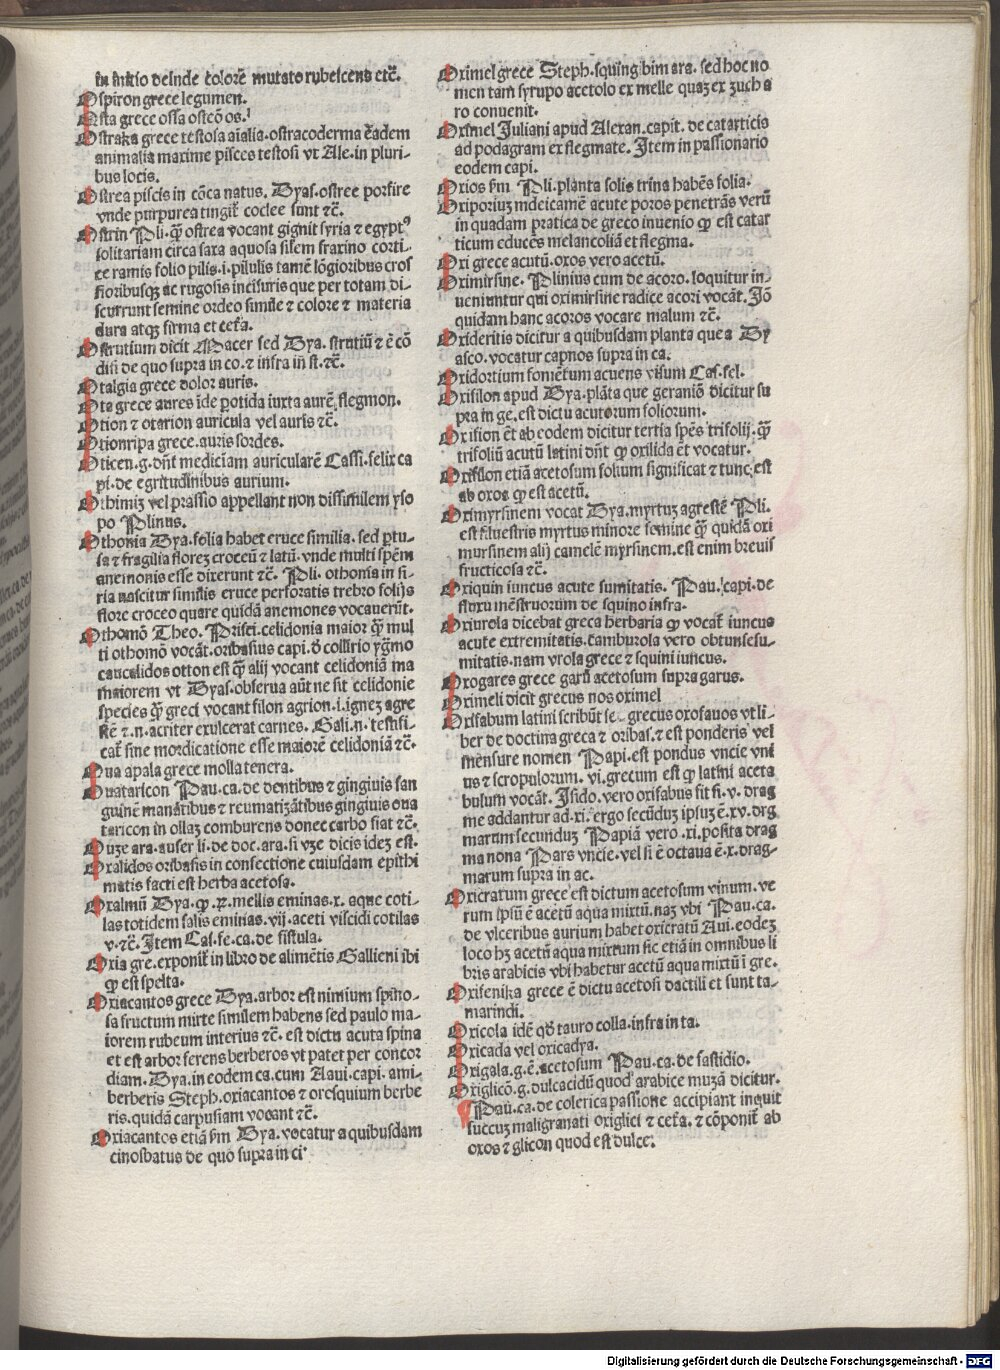 in initio deinde colorē mutato rubescens etc̄.
Ospiron grece legumen.
Osta grece ossa osteō os.
Ostraka grece testosa aīalia. ostracoderma ēadem
animalia maxime pisces testosi vt Ale. in pluri-
bus locis.
Ostrea piscis in cōca natus. Dyas. ostree porfire
vnde purpurea tingit̄ coclee sunt ⁊c̄.
Ostrin Pli. q̄ȝ ostrea vocant gignit syria ⁊ egyptꝰ
solitariam circa saxa aquosa silem fraxino corti-
ce ramis folio pilis. i. pilulis tamē lōgioribus
fioribusqȝ ac rugosis incisuris que per totam di-
scurrunt semine ordeo simile ⁊ colore ⁊ materia
dura atqȝ firma et cet̄a.
Ostrutium dicit Macer sed Dya. strutiū ⁊ ē cō
disi de quo supra in co. ⁊ infra in st. ⁊c̄.
Otalgia grece dolor auris.
Ota grece aures īde potida iuxta aurē flegmon.
Otion ⁊ otarion auricula vel auris ⁊c̄.
Otionripa grece. auris sordes.
Oticen. g. dn̄t medicīam auricularē Cassi. felix ca
pi. de egritudinibus aurium.
Othimiȝ vel prassio appellant non dissimilem yso
po Plinus.
Othonia Dya. folia habet eruce similia. sed ꝑtu-
sa ⁊ fragilia floreȝ croceū ⁊ latū. vnde multi spēm
anemonis esse dixerunt ⁊c̄. Pli. othonia in si-
ria nascitur similis eruce perforatis trebro folijs
flore croceo quare quidā anemones vocauerūt.
Othomō Theo. Prisci. celidonia maior q̄ȝ mul
ti othomō vocāt. oribasius capi. ð collirio ꝑgmo
caucalidos otton est q̄ȝ alij vocant celidoniā ma
maiorem vt Dyas. obserua aūt ne sit celidonie
species q̄ȝ greci vocant filon agrion. i. igneȝ agre
stē ⁊. n. acriter exulcerat carnes. Gali. n. testifi-
cat̄ sine mordicatione esse maiorē celidoniā ⁊c̄.
Oua apala grece molla tenera.
Ouataricon Pau. ca. de dentibus ⁊ gingiuis san
guinē manātibus ⁊ reumatizātibus gingiuis oua
taricon in ollaȝ comburens donec carbo fiat ⁊c̄.
Ouze ara. auser li. de doc. ara. si vze dicis ideȝ est.
Oxalidos oribasis in confectione cuiusdam epithi
matis facti est herba acetosa.
Oxalmū Dya. ꝙ. ꝶ. mellis eminas. x. aque coti-
las totidem salis eminas. vij. aceti viscidi cotilas
v. ⁊c̄. Item Cas. fe. ca. de fistula.
Oxia gre. exponit̄ in libro de alimētis Gallieni ibi
ꝙ est spelta.
Oxiacantos grece Dya. arbor est nimium spino-
sa fructum mirte similem habens sed paulo ma-
iorem rubeum interius ⁊c̄. est dictu acuta spina
et est arbor ferens berberos vt patet per concor
diam. Dya. in eodem ca. cum Aaui. capi. ami-
berberis Steph. oxiacantos ⁊ oresquium berbe
ris. quidā carpusiam vocant ⁊c̄.
Oxiacantos etiā ſm̄ Dya. vocatur a quibusdam
cinosbatus de quo supra in ci.
Oximel grece Steph. squing bim ara. sed hoc no
men tam syrupo acetolo ex melle quaȝ ex zuch a
ro conuenit.
Oximel Iuliani apud Alexan. capit. de cataxticis
ad podagram ex flegmate. Item in passionario
eodem capi.
Oxios ſm̄ Pli. planta solis trina habēs folia.
Oxiporiuȝ mdeicamē acute poros penetrās verū
in quadam pratica de greco inuenio ꝙ est catar
ticum educēs melancoliā et flegma.
Oxi grece acutū. oxos vero acetū.
Oximirsine. Plinius cum de acoro. loquitur in-
ueniuntur qui oximirsine radice acori vocāt. Iō
quidam hanc acoros vocare malum ⁊c̄.
Oxideritis dicitur a quibusdam planta que a Dy
asco. vocatur capnos supra in ca.
Oxidortium fomētum acuens visum Cas. fel.
Oxifilon apud Dya. plāta que geraniō dicitur su
pra in ge. est dictu acutorum foliorum.
Oxifion ēt ab eodem dicitur tertia spēs trifolij. q̄ȝ
trifoliū acutū latini dn̄t ꝙ oxilida ēt vocatur.
Oxifilon etiā acetosum folium significat ⁊ tunc est
ab oxos ꝙ est acetū.
Oximyrsinem vocat Dya. myrtuȝ agrestē Pli.
est siluestris myrtus minore fomine q̄ȝ quidā oxi
mursinem alij camelē myrsinem. est enim breuis
fructicosa ⁊c̄.
Oxiquin iuncus acute sumitatis. Pau. capi. de
fluxu mēstruorum de squino infra.
Oxiurola dicebat greca herbaria ꝙ vocat̄ iuncus
acute extremitatis. camburola vero obtunsesu-
mitatis. nam vrola grece ⁊ squini iuncus.
Oxogares grece garū acetosum supra garus.
Oximeli dicit grecus nos oximel
Oxifabum latini scribūt se. grecus oxofauos vt li-
ber de doctrina greca ⁊ oribas. ⁊ est ponderis vel
mensure nomen Papi. est pondus vncie vni
us ⁊ scropulorum. vi. grecum est ꝙ latini aceta
bulum vocāt. Isido. vero oxifabus fit si. v. drag
me addantur ad. xi. ergo secūduȝ ipsuȝ ē. xv. drg
marum secunduȝ Papiā vero. xi. posita drag
ma nona Pars vncie. vel si ē octaua ē. x. drag-
marum supra in ac.
Oxicratum grece est dictum acetosum vinum. ve
rum ipsū ē acetū aqua mixtū. naȝ vbi Pau. ca.
de vlceribus aurium habet oxicratū Aui. eodeȝ
loco hȝ acetū aqua mixtum sic etiā in omnibus li
bris arabicis vbi habetur acetū aqua mixtū ī gre.
Oxifenika grece ē dictu acetosi dactili et sunt ta-
marindi.
Oxicola idē qð tauro colla. infra in ta.
Oxicada vel oxicadya.
Oxigala. g. ē. acetosum Pau. ca. de fastidio.
Oxiglicō. g. dulcacidū quod arabice muzā dicitur.
Pau. ca. de colerica passione accipiant inquit
succuȝ maligranati oxiglici ⁊ cet̄a. ⁊ cōponit̄ ab
oxos ⁊ glicon quod est dulce.
Digitalisierung gefördert durch die Deutsche Forschungsgemeinschaft - DFG